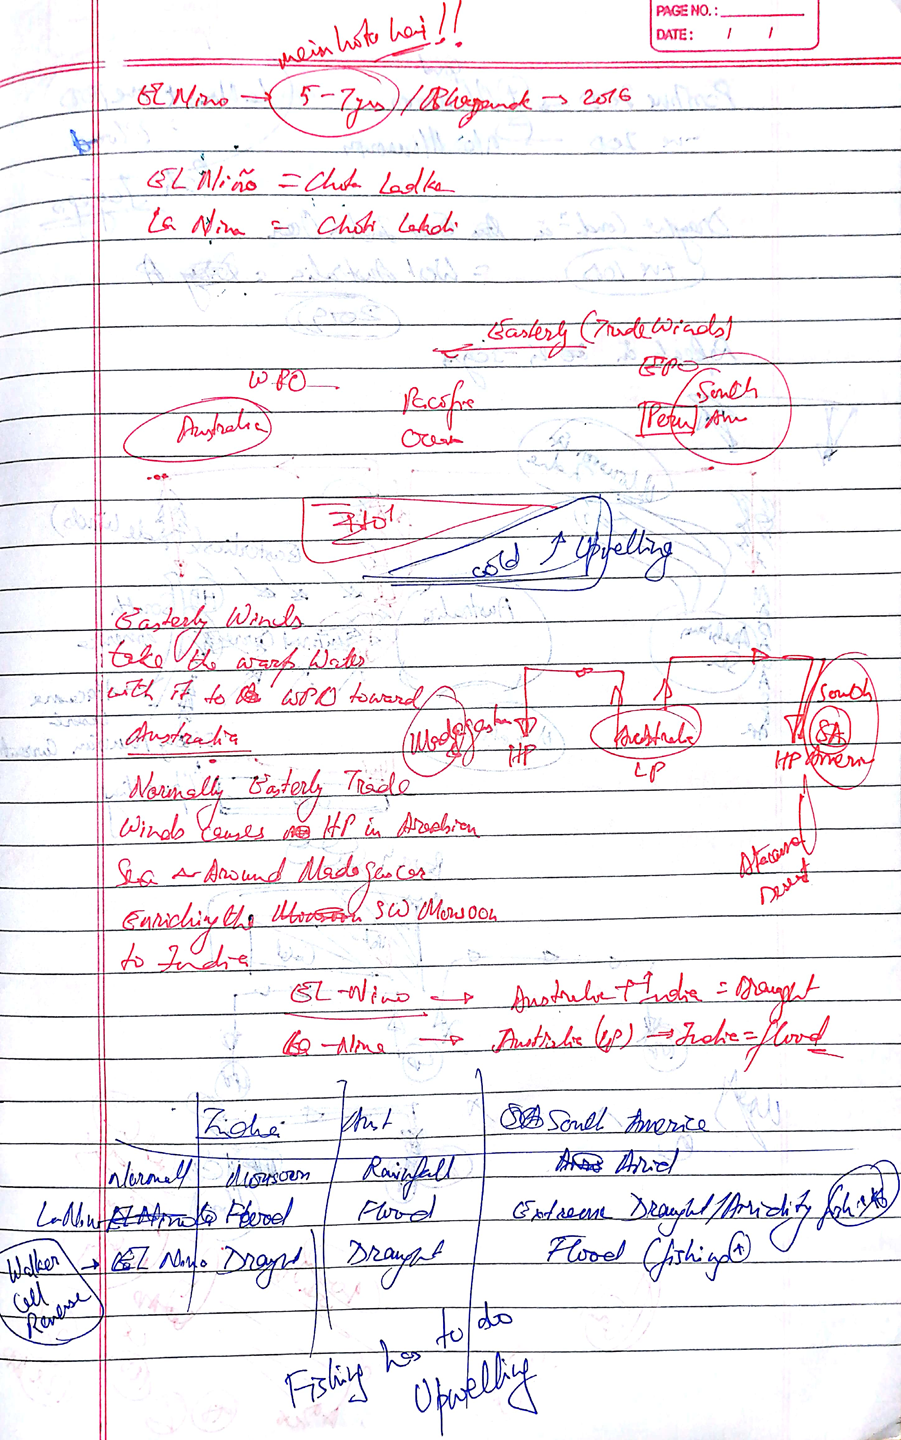 PAGE NO.:
DATE: / /
mein hota hai!!
EL Nino → 5-7yrs / → 2016
EL Niño = Chota Ladka
La Nina = Choti Ladki
Easterly (Trade Winds)
WPO EPO
Australia Pacific Ocean [Peru] South Am
Hot
cold ↑ Upwelling
Easterly Winds
take the warm Water
with it to WPO toward
Australia
Madagascar HP Australia LP South SA America HP
Atacama Desert
Normally Easterly Trade
Winds causes HP in Arabian
Sea Around Madagascar
Enriching the SW Monsoon
to India
EL-Nino → Australia ↑ India = Draught
La-Nina → Australia (LP) → India = flood
India Aust South America
Normal Monsoon Rainfall Arid
La Nina Flood Flood Extreme Draught/Aridity
Walker Cell Reverse → EL Nino Draught Draught Flood (fishing+)
Fishing has to do
Upwelling